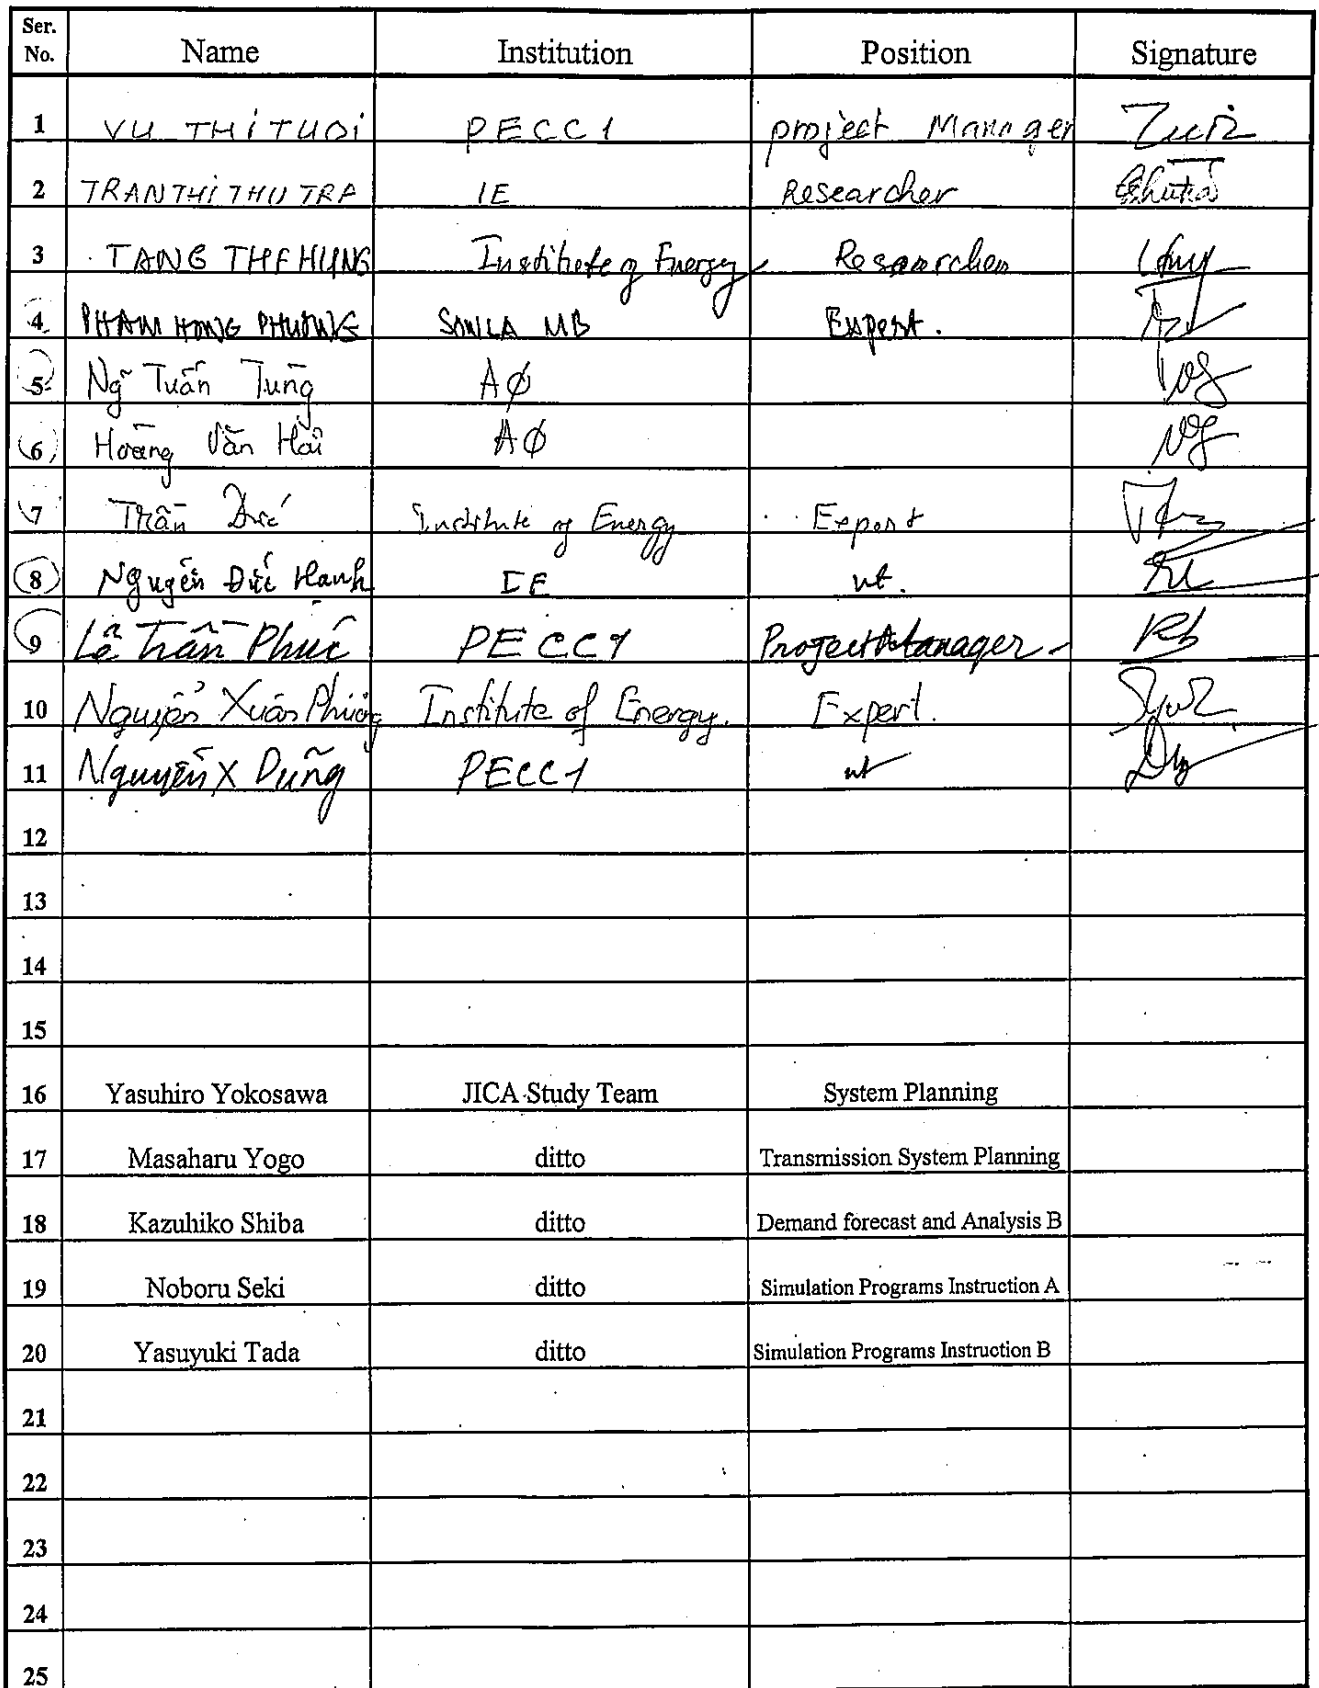 Ser. No. Name Institution Position Signature
1 VU THI TUOI PECC1 project Manager
2 TRAN THI THU TRA IE Researcher
3 TANG THE HUNG Institute of Energy Researcher
4 PHAM HONG PHUONG SONLA MB Expert.
5 Ngỹ Tuấn Tùng AØ
6 Hoàng Văn Hải AØ
7 Trần Institute of Energy Expert
8 Nguyễn Đức Hanh IE nt.
9 Lê Trần Phúc PECC1 Project Manager
10 Nguyễn Xuân Phương Institute of Energy. Expert.
11 Nguyễn X Dũng PECC1 nt
12
13
14
15
16 Yasuhiro Yokosawa JICA Study Team System Planning
17 Masaharu Yogo ditto Transmission System Planning
18 Kazuhiko Shiba ditto Demand forecast and Analysis B
19 Noboru Seki ditto Simulation Programs Instruction A
20 Yasuyuki Tada ditto Simulation Programs Instruction B
21
22
23
24
25